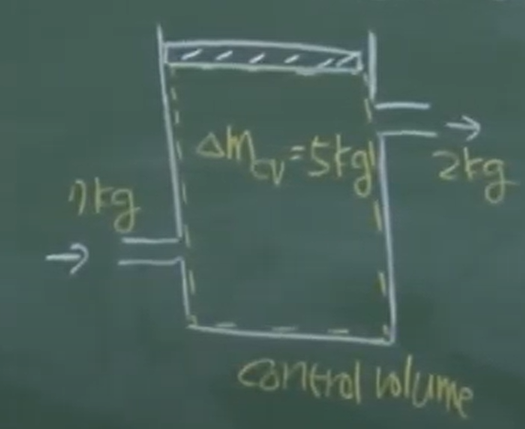 Δm_cv = 5kg
2kg
7kg
control volume